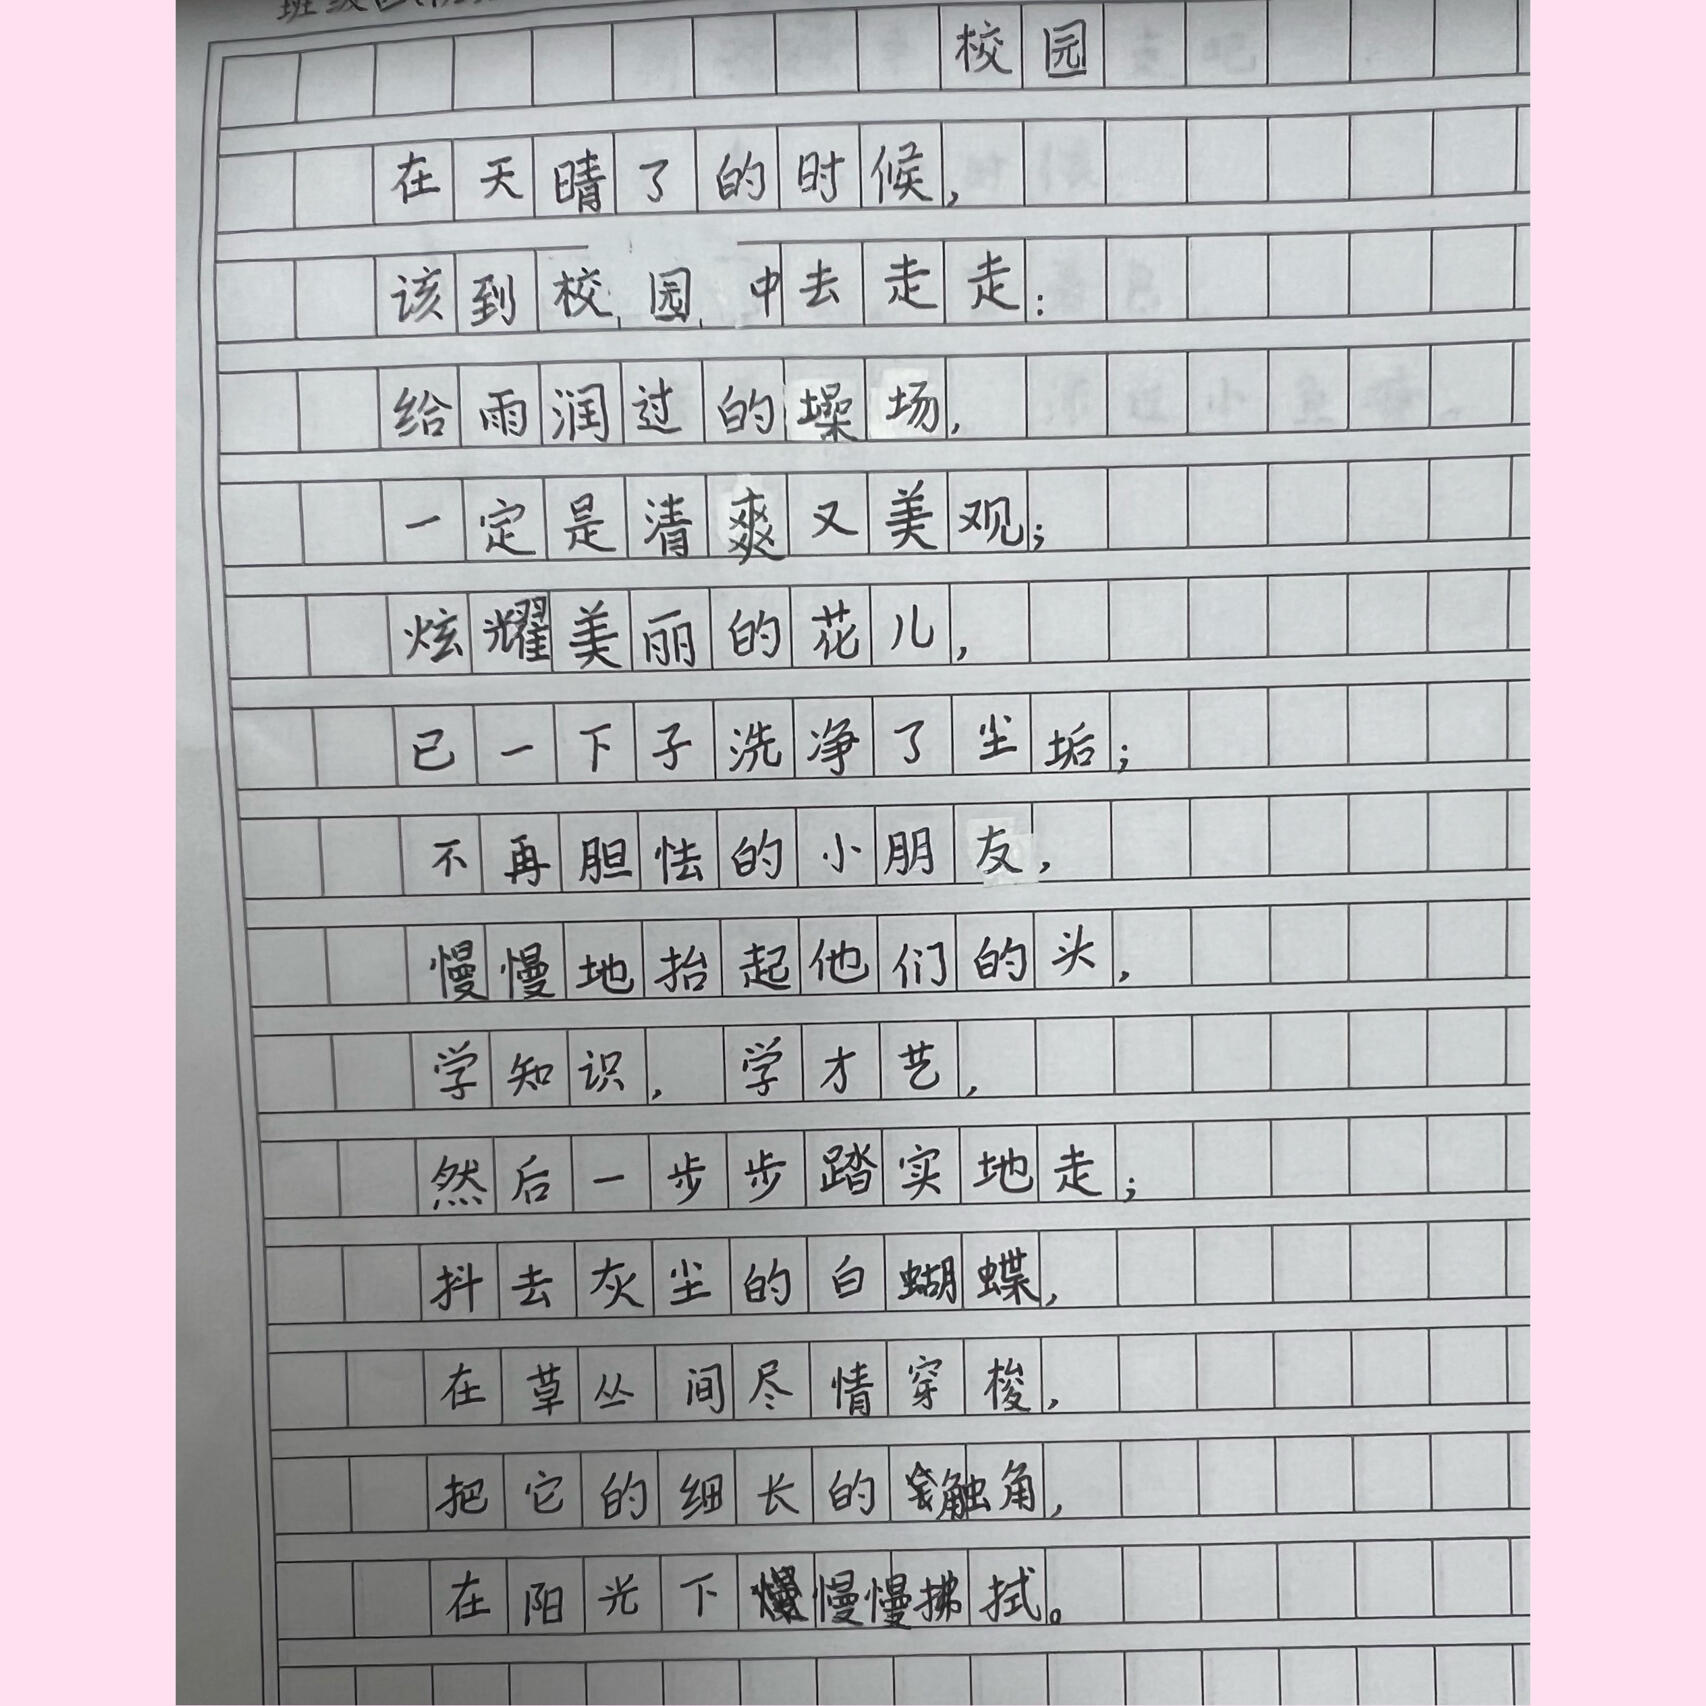 校园
在天晴了的时候，
该到校园中去走走：
给雨润过的操场，
一定是清爽又美观；
炫耀美丽的花儿，
已一下子洗净了尘垢；
不再胆怯的小朋友，
慢慢地抬起他们的头，
学知识，学才艺，
然后一步步踏实地走；
抖去灰尘的白蝴蝶，
在草丛间尽情穿梭，
把它的细长的触角，
在阳光下慢慢拂拭。